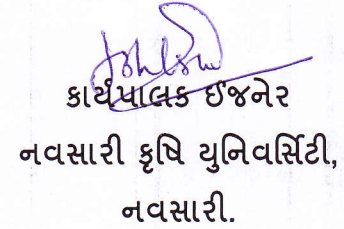 કાર્યપાલક ઈજનેર
નવસારી કૃષિ યુનિવર્સિટી,
નવસારી.